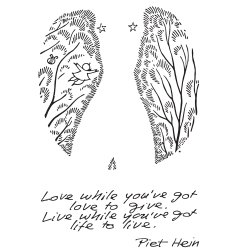 Love while you've got
love to give.
Live while you've got
life to live.
Piet Hein